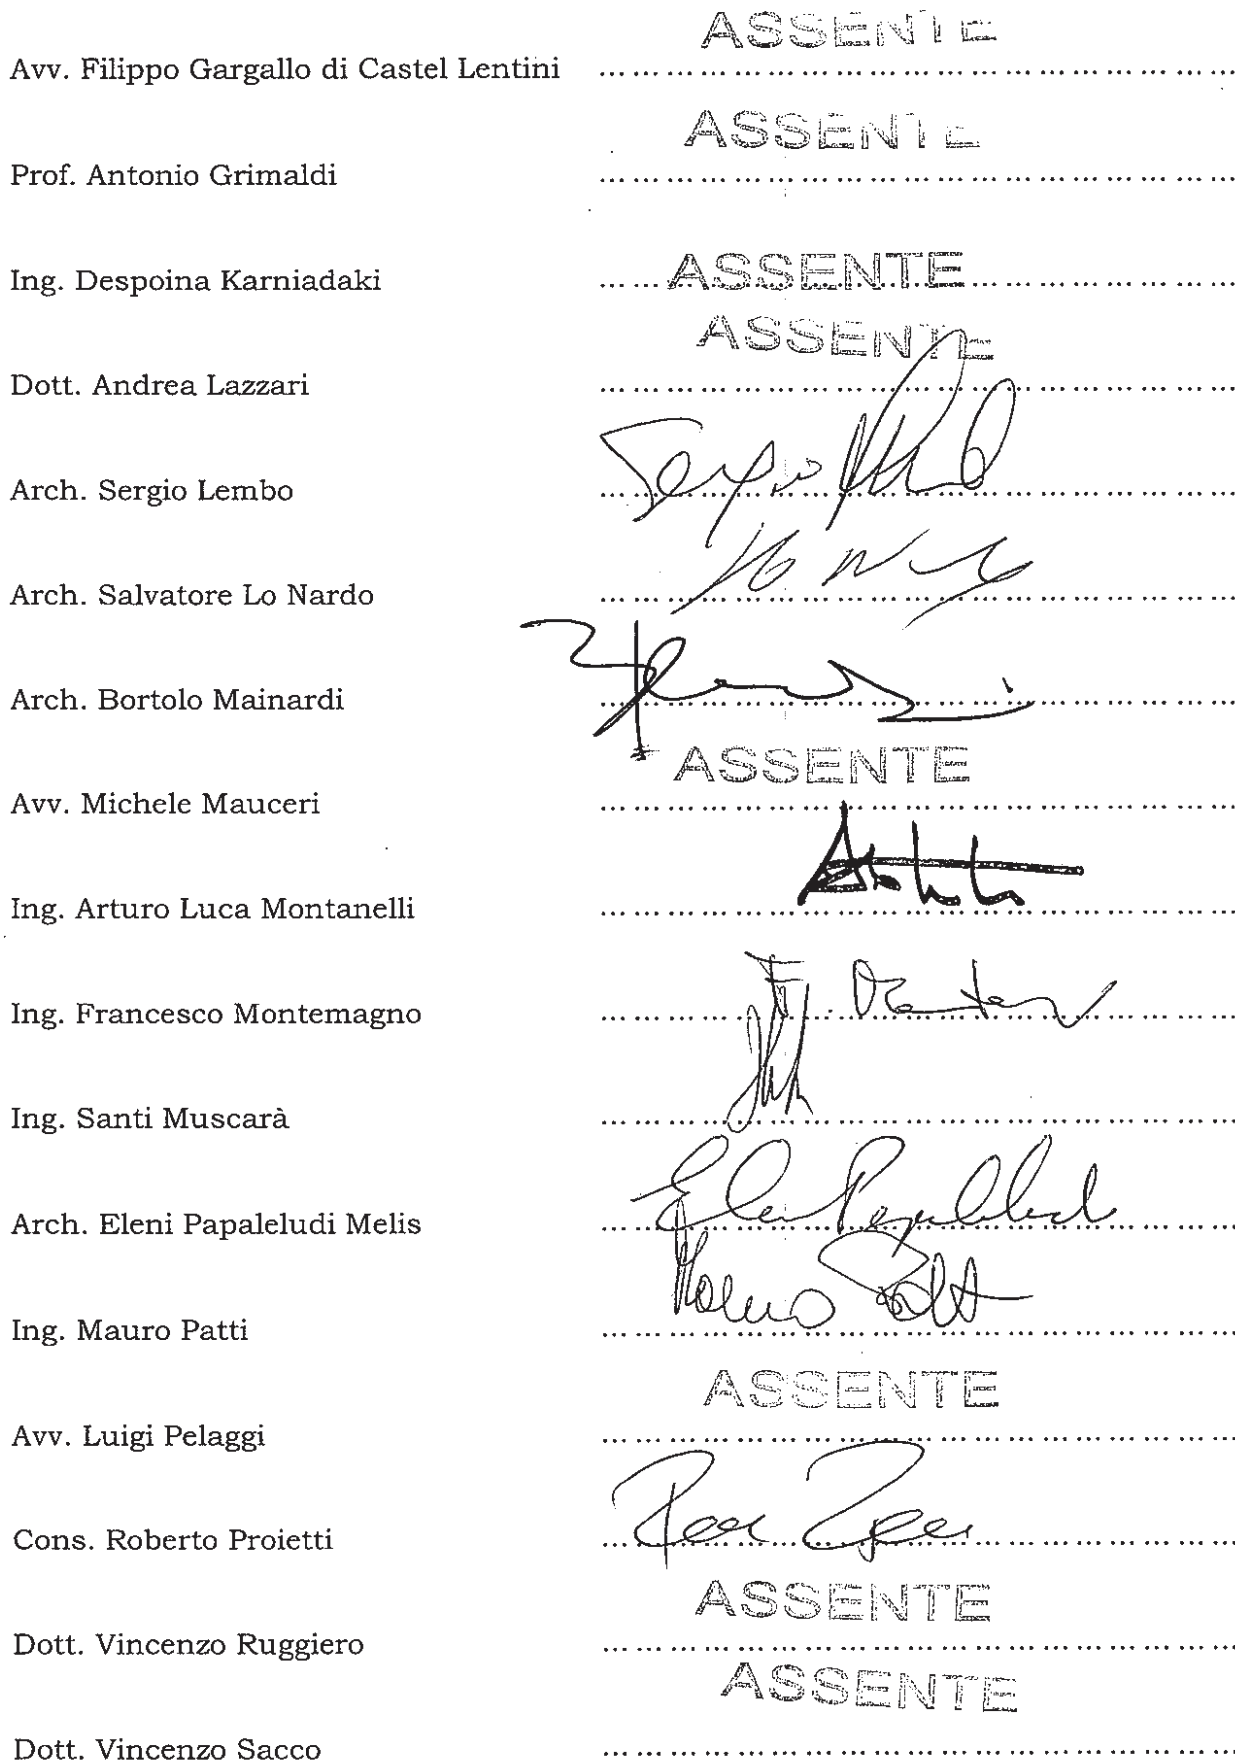 ASSENTE
Avv. Filippo Gargallo di Castel Lentini ……………………………………………………
ASSENTE
Prof. Antonio Grimaldi ……………………………………………………
Ing. Despoina Karniadaki ……ASSENTE……………………
ASSENTE
Dott. Andrea Lazzari ……………………………………………………
Arch. Sergio Lembo ……Sergio……………………
Arch. Salvatore Lo Nardo ……………………………………………………
Arch. Bortolo Mainardi ……………………………………………………
ASSENTE
Avv. Michele Mauceri ……………………………………………………
Ing. Arturo Luca Montanelli ……………………………………………………
Ing. Francesco Montemagno ……………………………………………………
Ing. Santi Muscarà ……………………………………………………
Arch. Eleni Papaleludi Melis ……………………………………………………
Ing. Mauro Patti ……………………………………………………
ASSENTE
Avv. Luigi Pelaggi ……………………………………………………
Cons. Roberto Proietti ……………………………………………………
ASSENTE
Dott. Vincenzo Ruggiero ……………………………………………………
ASSENTE
Dott. Vincenzo Sacco ……………………………………………………